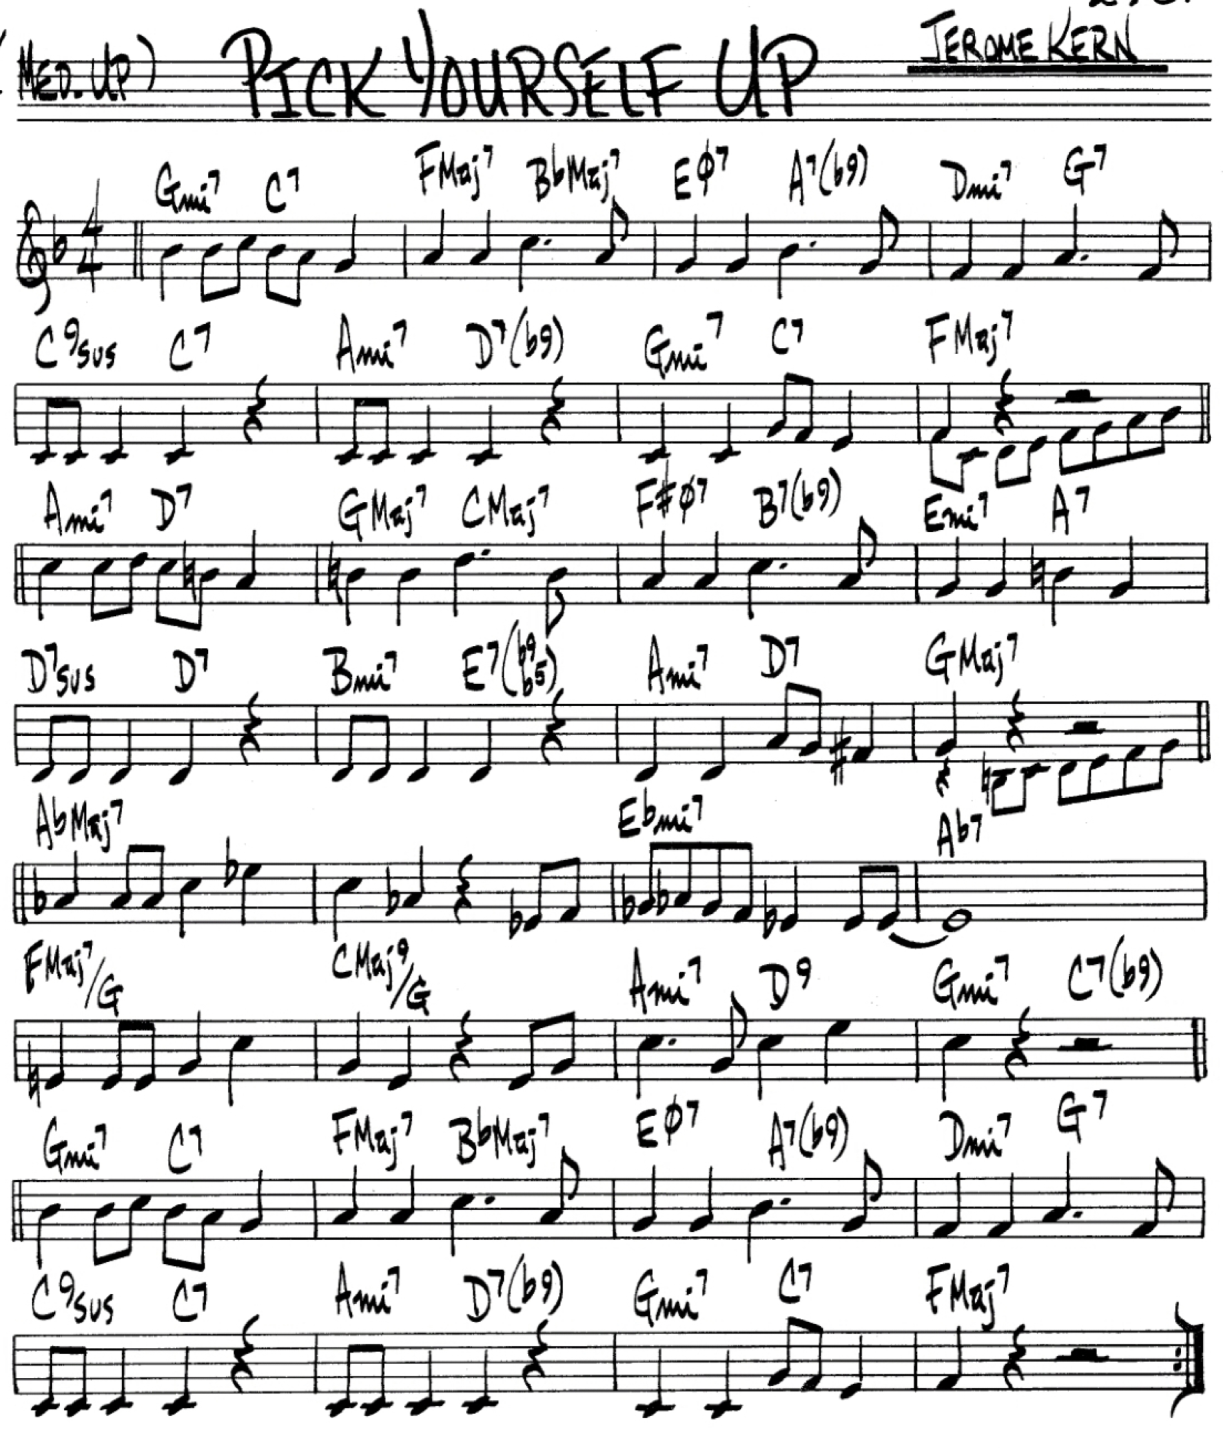 (MED. UP) PICK YOURSELF UP JEROME KERN
4
4
Gmi7 C7 FMaj7 BbMaj7 Eø7 A7(b9) Dmi7 G7
C9sus C7 Ami7 D7(b9) Gmi7 C7 FMaj7
Ami7 D7 GMaj7 CMaj7 F#ø7 B7(b9) Emi7 A7
D7sus D7 Bmi7 E7(b9 b5) Ami7 D7 GMaj7
AbMaj7 Ebmi7 Ab7
FMaj7/G CMaj9/G Ami7 D9 Gmi7 C7(b9)
Gmi7 C7 FMaj7 BbMaj7 Eø7 A7(b9) Dmi7 G7
C9sus C7 Ami7 D7(b9) Gmi7 C7 FMaj7